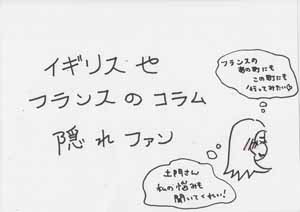 イギリスや
フランスのコラム
隠れファン
フランスの
あの町にも
この町にも
行ってみたい
土門さん
私の悩みも
聞いてくれい!